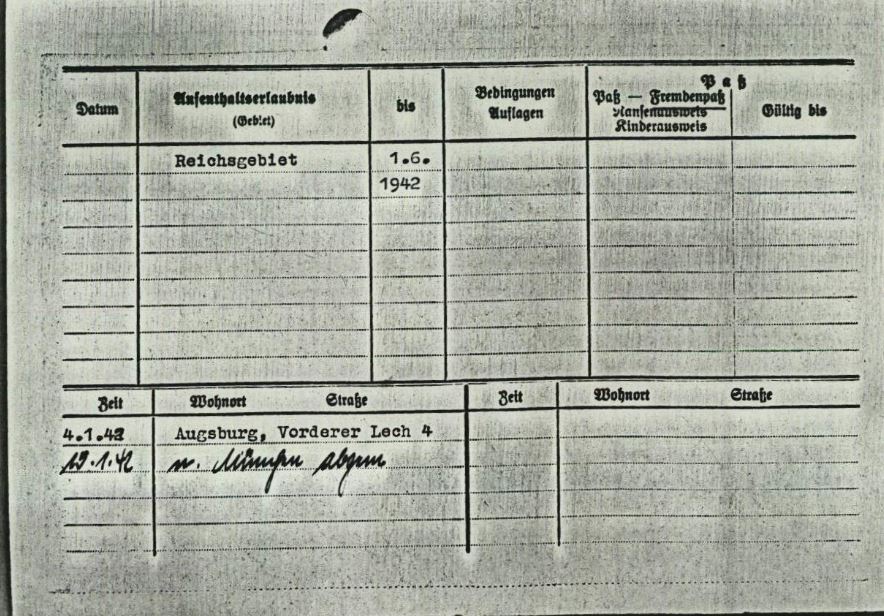 Paß
Datum Aufenthaltserlaubnis bis Bedingungen Paß — Fremdenpaß Gültig bis
(Gebiet) Auflagen Nansenausweis
Kinderausweis
Reichsgebiet 1.6.
1942
Zeit Wohnort Straße Zeit Wohnort Straße
4.1.42 Augsburg, Vorderer Lech 4
n. München abgem